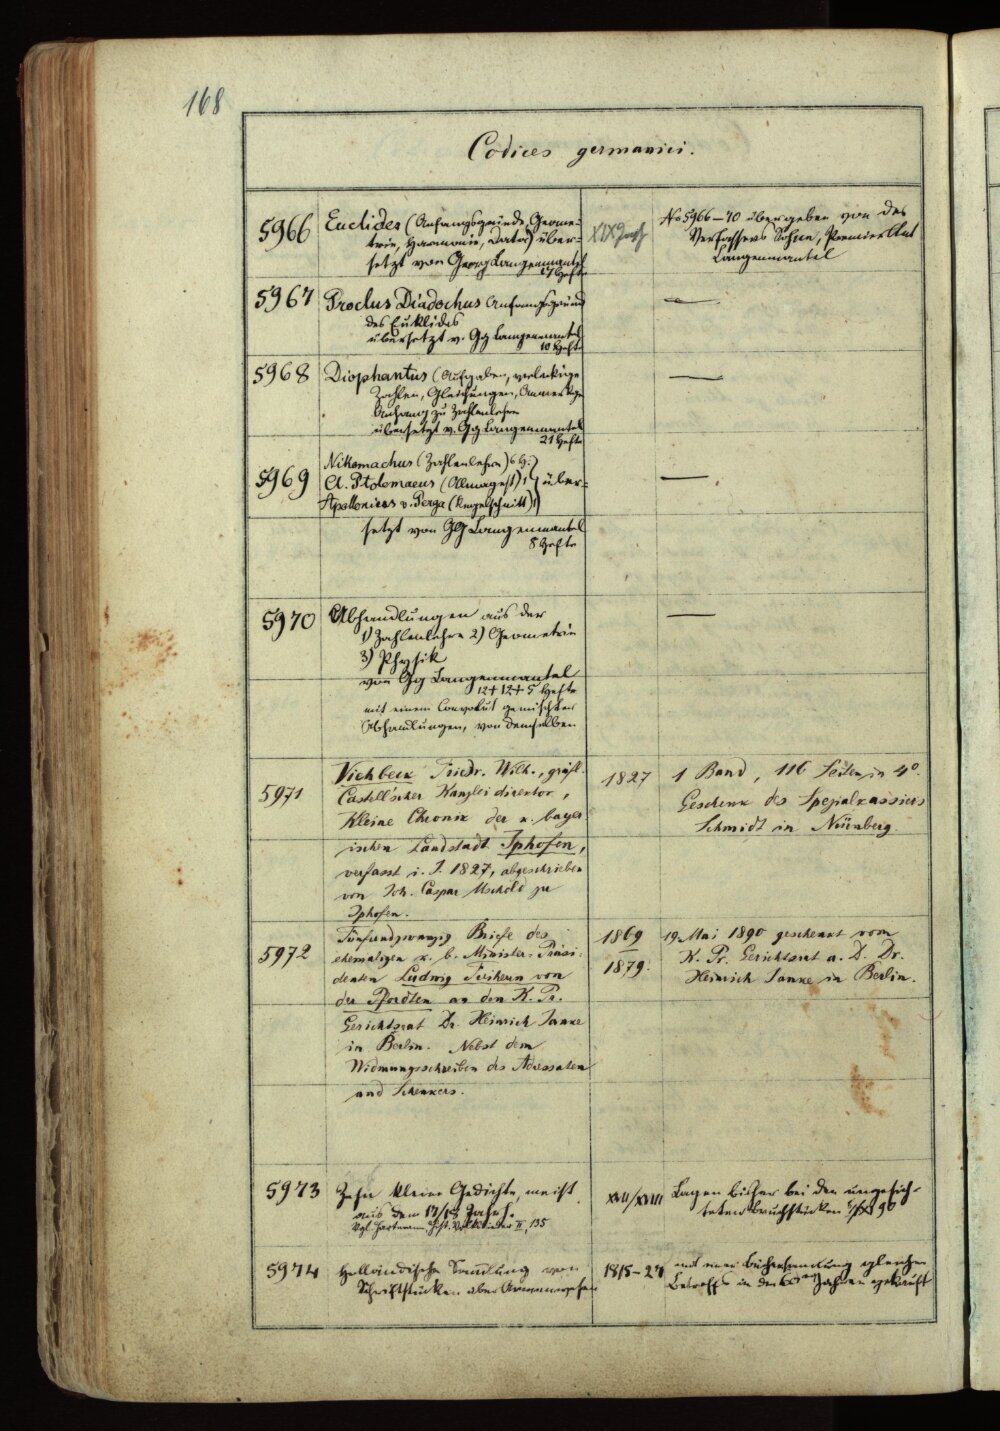 168
Codices germanici.
5966 Euclides (Anfangsgründe, Geome-
trie, Harmonie, Data) über-
setzt von Georg Langenmantel
17 Hefte
XIX Jahrh
No 5966–70 übergeben von des
Verfassers Sohne, Premierltnt
Langenmantel
5967 Proclus Diadochus Anfangsgründ
des Euklides
übersetzt v. Gg Langenmantel
10 Hefte
—
5968 Diophantus (Aufgaben,
Zahlen, Gleichungen,
Anhang zu Zahlenlehre
übersetzt v. Gg Langenmantel
21 Hefte
—
5969 Nikomachus (Zahlenlehre) 6 H.
Cl. Ptolemaeus (Almagest) 1 über-
Apollonicus v. Perga (Kegelschnitt) 1
setzt von GG Langenmantel
8 Hefte
—
5970 Abhandlungen aus der
1) Zahlenlehre 2) Geometrie
3) Physik
von Gg Langenmantel
12+12+5 Hefte
mit einem Convolut gemischter
Abhandlungen, von demselben
—
5971 Viehbeck Friedr. Wilh., gräfl.
Castell'scher Kanzleidirektor,
Kleine Chronik der k. bayer
ischen Landstadt Iphofen,
verfasst i. J. 1827, abgeschrieben
von Joh. Caspar zu
Iphofen.
1827
1 Band, 116 Seiten in 4°.
Geschenk des Spezialkassiers
Schmidt in Nürnberg.
5972 Fünfundzwanzig Briefe des
ehemaligen k. b. Minister-Präsi-
denten Ludwig Freiherrn von
der Pfordten an den K. Pr.
Gerichtsrat Dr. Heinrich Janke
in Berlin. Nebst dem
Widmungsschreiben des Adressaten
und Schenkers.
1869
1879.
19. Mai 1890 geschenkt vom
K. Pr. Gerichtsrat a. D. Dr.
Heinrich Janke in Berlin.
5973 Zehn kleine Gedichte, meist
aus dem 17/18 Jahrh.
Vgl. Hartmann, Hist. Volkslieder II, 135
XVII/XVIII
Lagen bisher bei den ungesich-
teten Bruchstücken 90
5974 Holländische Sammlung von
Schriftstücken über Armenwesen
1818–27
mit einer Büchersammlung gleichen
Betreffs in den 60er Jahren gekauft